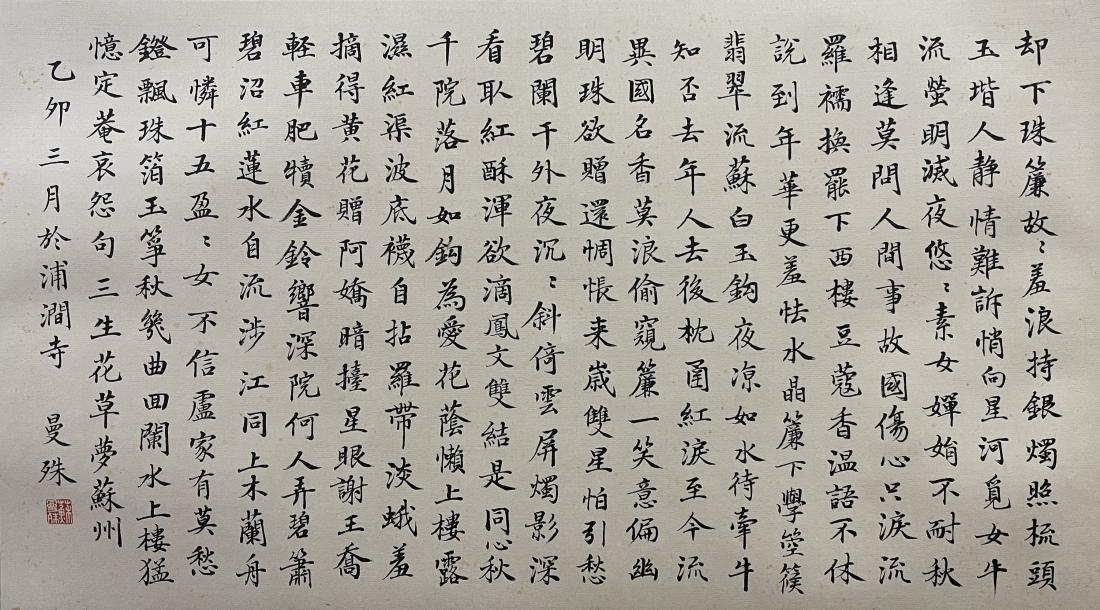 却下珠簾故〻羞浪持銀燭照梳頭
玉堦人静情難訴悄向星河覓女牛
流螢明滅夜悠〻素女嬋娟不耐秋
相逢莫問人間事故國傷心只淚流
羅襦換罷下西樓豆蔻香温語不休
說到年華更羞怯水晶簾下學箜篌
翡翠流蘇白玉鈎夜凉如水待牽牛
知否去年人去後枕圅紅淚至今流
異國名香莫浪偷窺簾一笑意偏幽
明珠欲贈還惆悵来歲雙星怕引愁
碧闌干外夜沉〻斜倚雲屏燭影深
看取紅酥渾欲滴鳳文雙結是同心秋
千院落月如鈎為愛花蔭懶上樓露
濕紅渠波底襪自拈羅帶淡蛾羞
摘得黄花贈阿嬌暗擡星眼謝王喬
軽車肥犢金鈴響深院何人弄碧簫
碧沼紅蓮水自流涉江同上木蘭舟
可憐十五盈〻女不信盧家有莫愁
鐙飄珠箔玉筝秋幾曲回闌水上樓猛
憶定菴哀怨句三生花草夢蘇州
乙卯三月於浦澗寺 曼殊